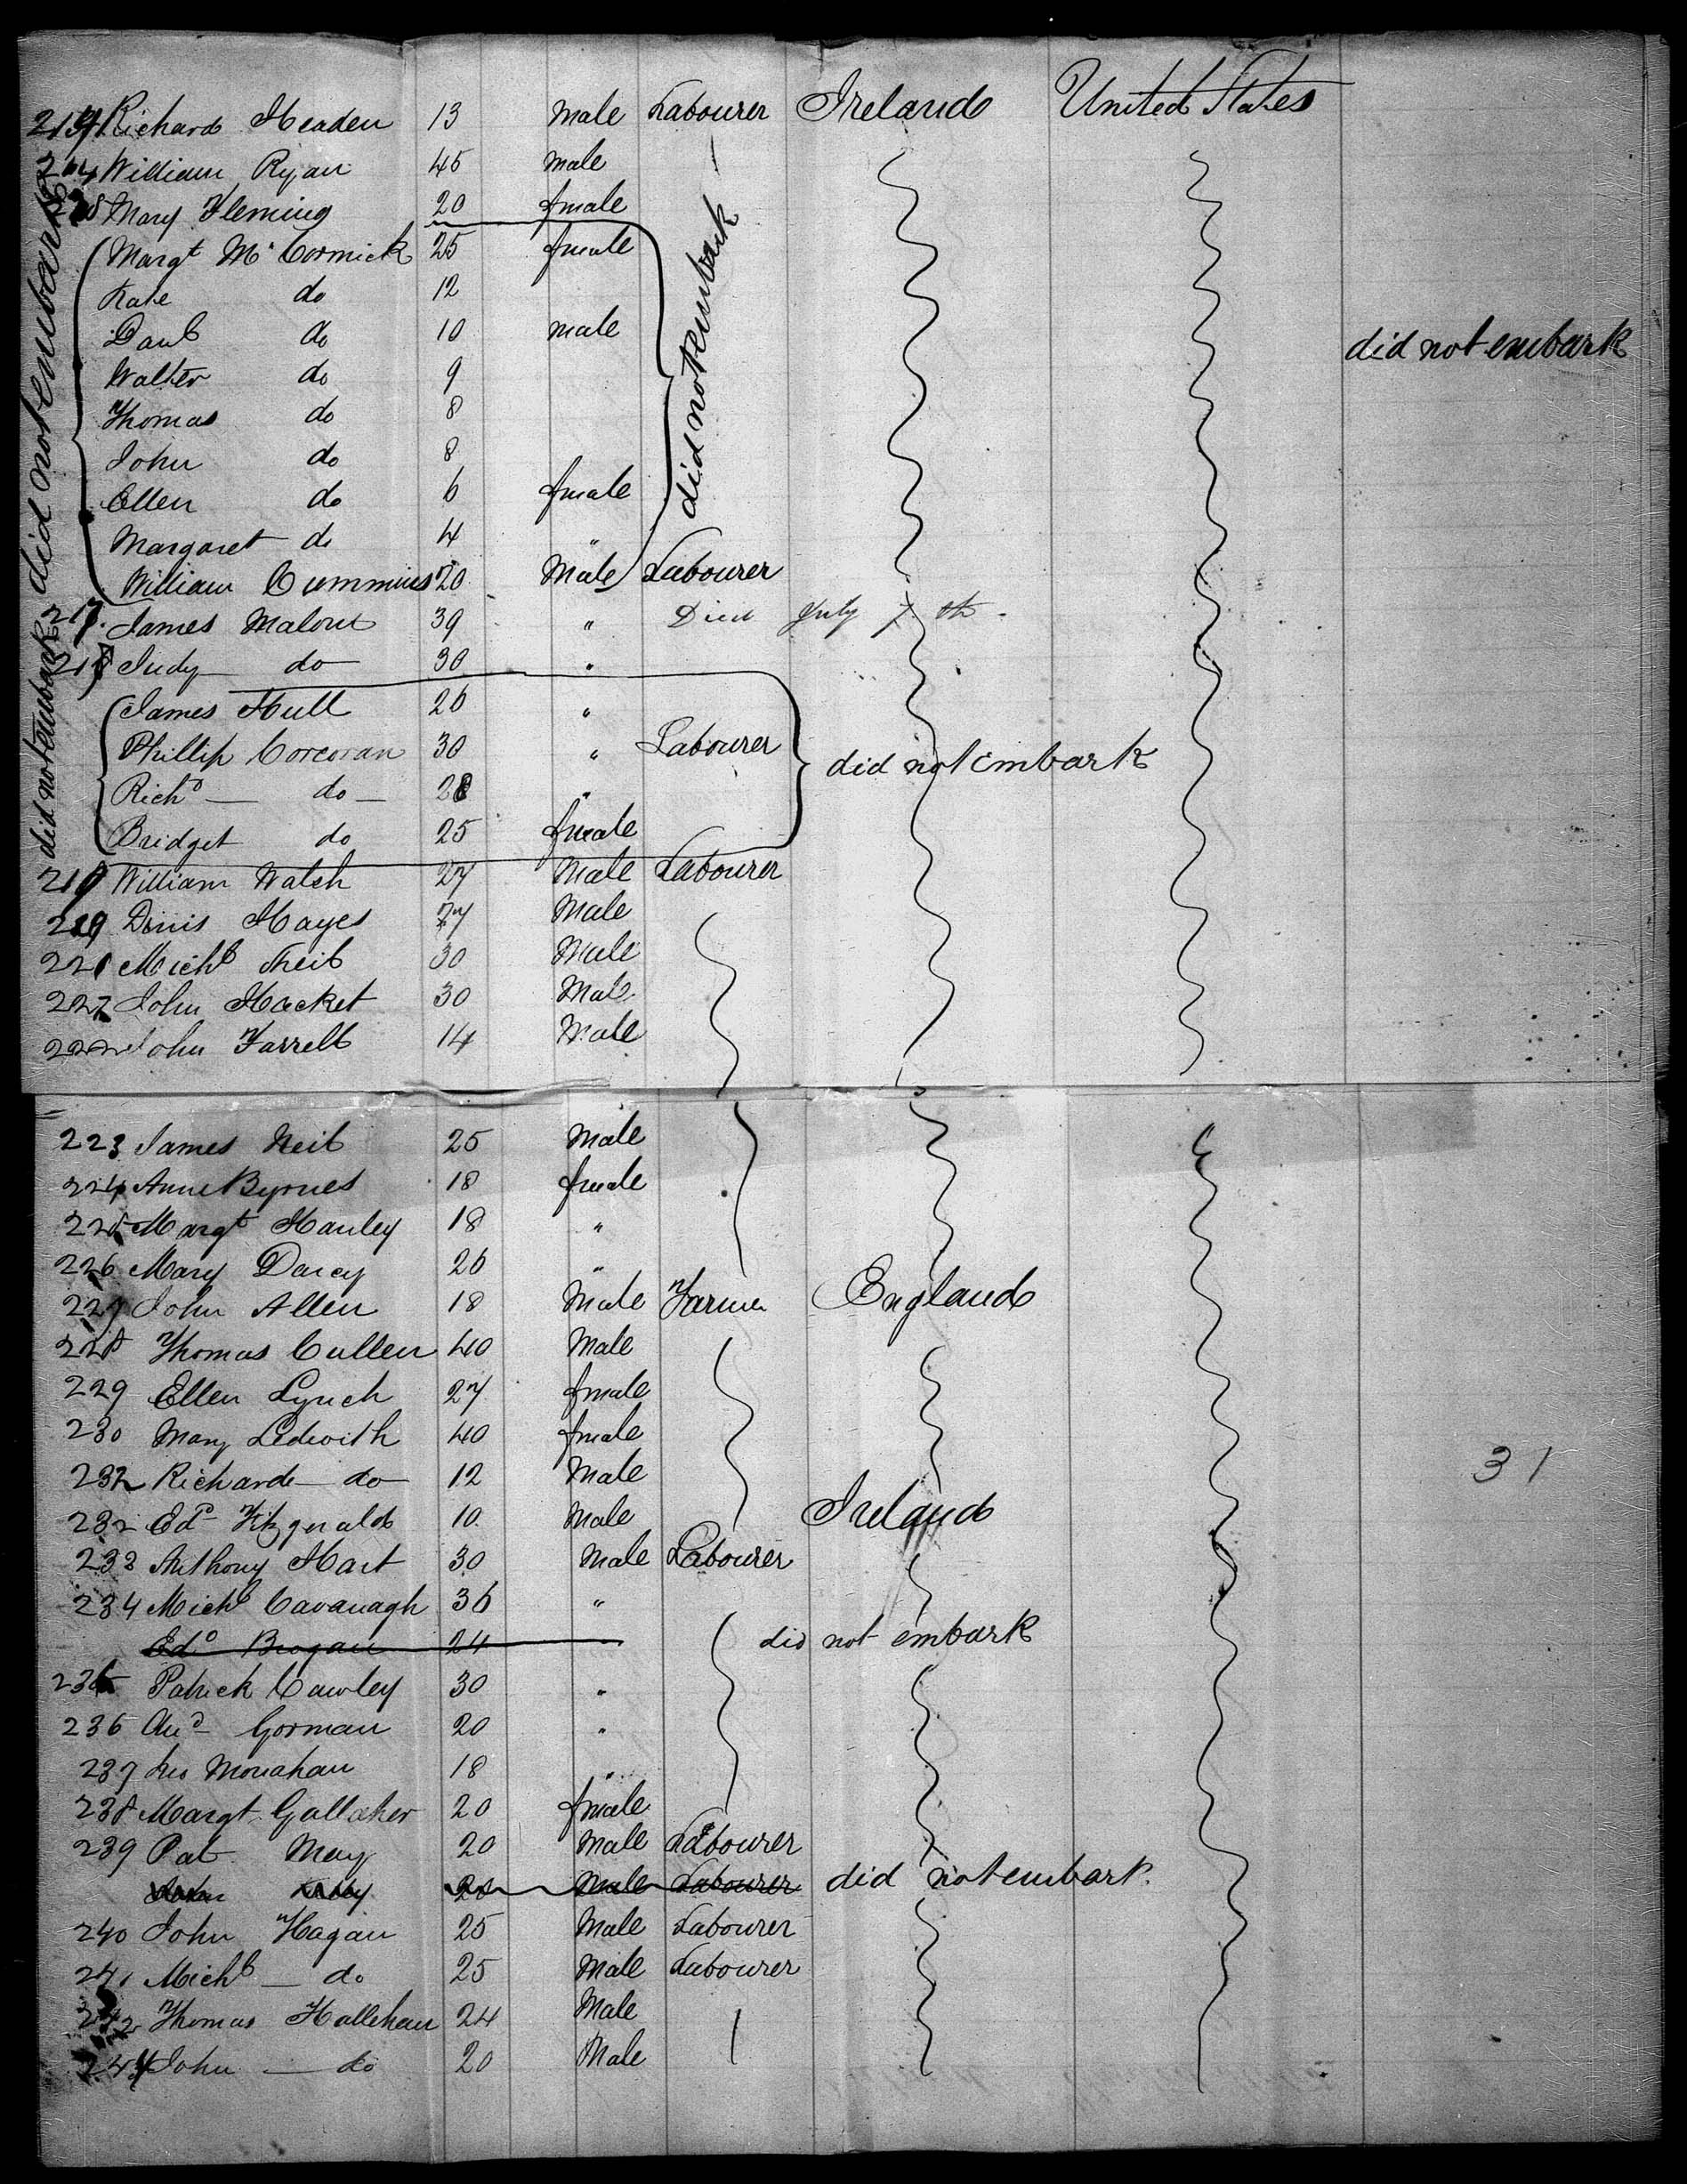 Richard Headen 13 Male Labourer Ireland United States
William Ryan 45 male
Mary Fleming 20 female
Margt McCormick 25 female
Kate do 12
Danl do 10 male
did not embark
Walter do 9
Thomas do 8
John do 8
Ellen do 6 female
Margaret do 4 "
William Cummins 20 Male Labourer
did not embark
did not embark
217 James Malone 39 " Died July 7 th
Judy do 30 "
James Hull 26 "
Phillip Corcoran 30 " Labourer did not embark
Richd do 28 "
Bridget do 25 female
did not embark
William Walsh 27 Male Labourer
Dinis Hayes 27 Male
Michl Neil 30 Male
John Hacket 30 Male
222 John Farrell 14 Male
223 James Neil 25 Male
224 Anne Byrnes 18 female
225 Margt Hanley 18 "
226 Mary Darcy 26 "
227 John Allen 18 Male Farmer England
228 Thomas Cullen 40 Male
229 Ellen Lynch 27 female
230 Mary Ledwith 40 female
Richard do 12 Male
31
232 Edd Fitzgerald 10 Male Ireland
233 Anthony Hart 30 Male Labourer
234 Michl Cavanagh 36 "
Edd Brogan 24 " did not embark
235 Patrick Cawley 30 "
236 And Gorman 20 "
237 Monahan 18 "
238 Margt Gallaher 20 female
239 Pat May 20 Male Labourer
20 Male Labourer did not embark
240 John Hagan 25 Male Labourer
241 Michl do 25 Male Labourer
242 Thomas Hallehan 24 Male
John do 20 Male